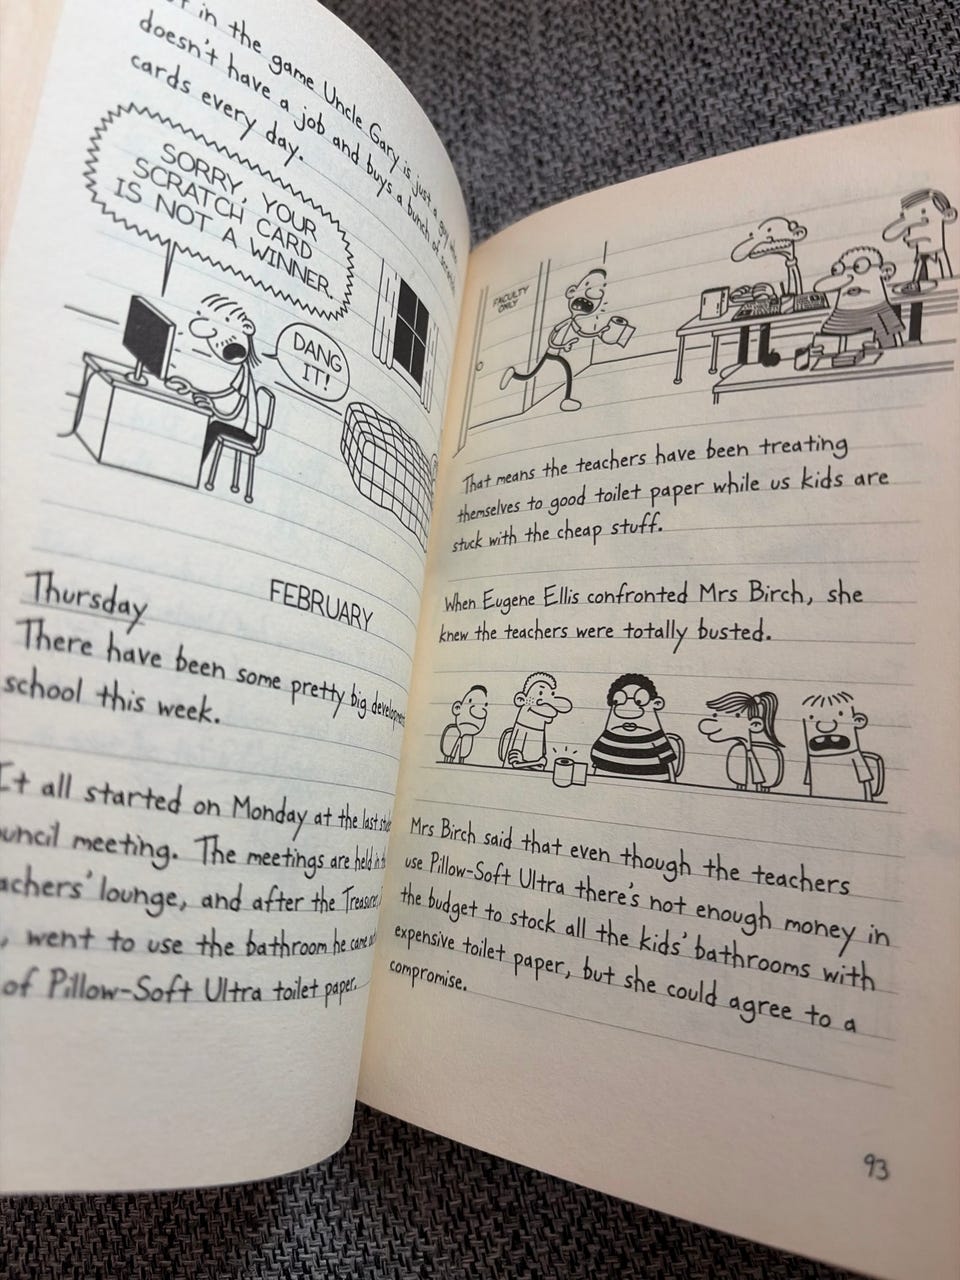 in the game Uncle Gary is just a guy who
doesn't have a job and buys a bunch of scratch
cards every day.
SORRY, YOUR
SCRATCH CARD
IS NOT A WINNER.
DANG
IT!
FEBRUARY
Thursday
There have been some pretty big
school this week.
It all started on Monday at the last
meeting. The meetings are held in
lounge, and after the
, went to use the bathroom he came
of Pillow-Soft Ultra toilet paper.
FACULTY
ONLY
That means the teachers have been treating
themselves to good toilet paper while us kids are
stuck with the cheap stuff.
When Eugene Ellis confronted Mrs Birch, she
knew the teachers were totally busted.
Mrs Birch said that even though the teachers
use Pillow-Soft Ultra there's not enough money in
the budget to stock all the kids' bathrooms with
expensive toilet paper, but she could agree to a
compromise.
93